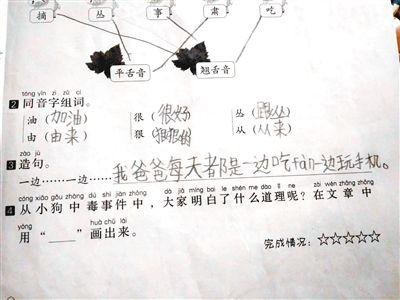 摘 丛 事 肃 吃
平舌音 翘舌音
tóng yīn zì zǔ cí
2 同音字组词。
油（加油） 很（很好） 丛（ 丛）
由（由来） 狠（狠狠的） 从（从来）
zào jù
3 造句。
一边……一边……我爸爸每天都是一边吃fàn一边玩手机。
cóng xiǎo gǒu zhòng dú shì jiàn zhōng dà jiā míng bai le shén me dào lǐ ne zài wén zhāng zhōng
4 从小狗中毒事件中，大家明白了什么道理呢？在文章中
yòng huà chū lái
用“____”画出来。
完成情况：☆☆☆☆☆